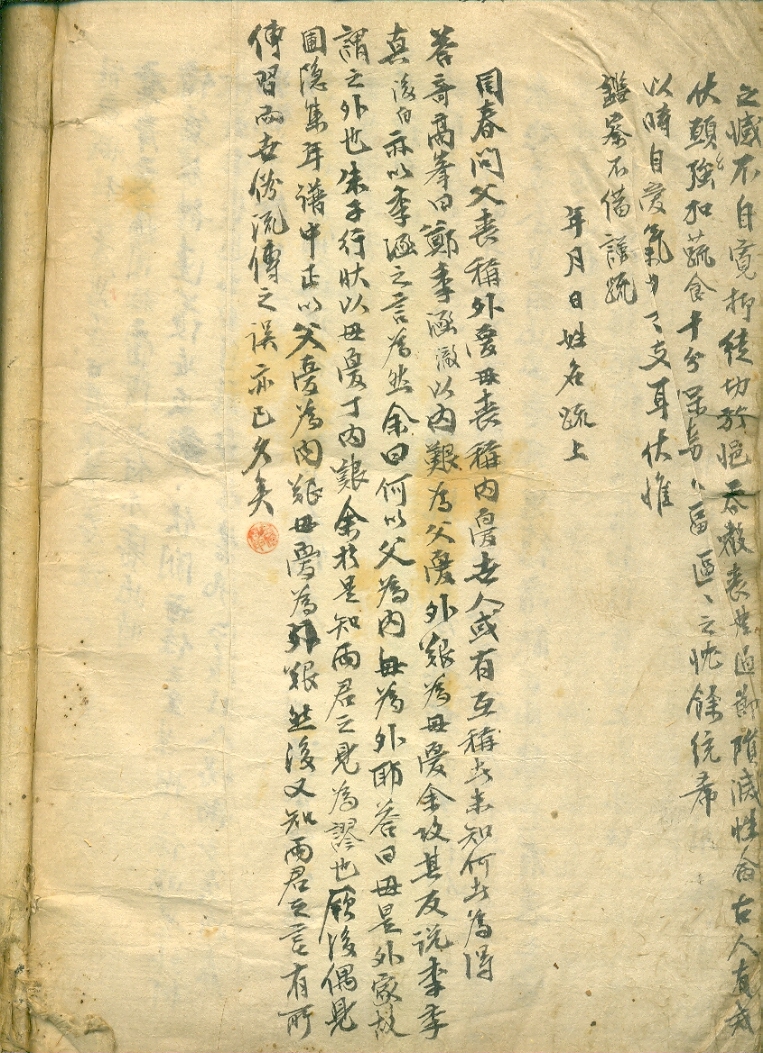 之慽不自寬抑徒切於悒吾叔喪葬過節隕滅性命古人有戒
伏願强加蔬食十分保嗇區區之忱餘統希
以時自愛氣力之支耳伏惟
鑑察不備謹疏
年月日姓名疏上
同春問父喪稱外憂母喪稱內憂世人或有互稱者未知何者爲得
答哥高峯曰鄭季涵澈以內艱爲父憂外艱爲母憂余攻其反說李季
真後白亦以季涵之言爲然余曰何以父爲內母爲外耶答曰母是外家故
謂之外也朱子行狀以母憂丁內艱余於是知兩君之見爲謬也厥後偶見
圃隱集年譜中正以父憂爲內艱母憂爲外艱然後又知兩君之言有所
傳習而世俗流傳之誤亦已久矣